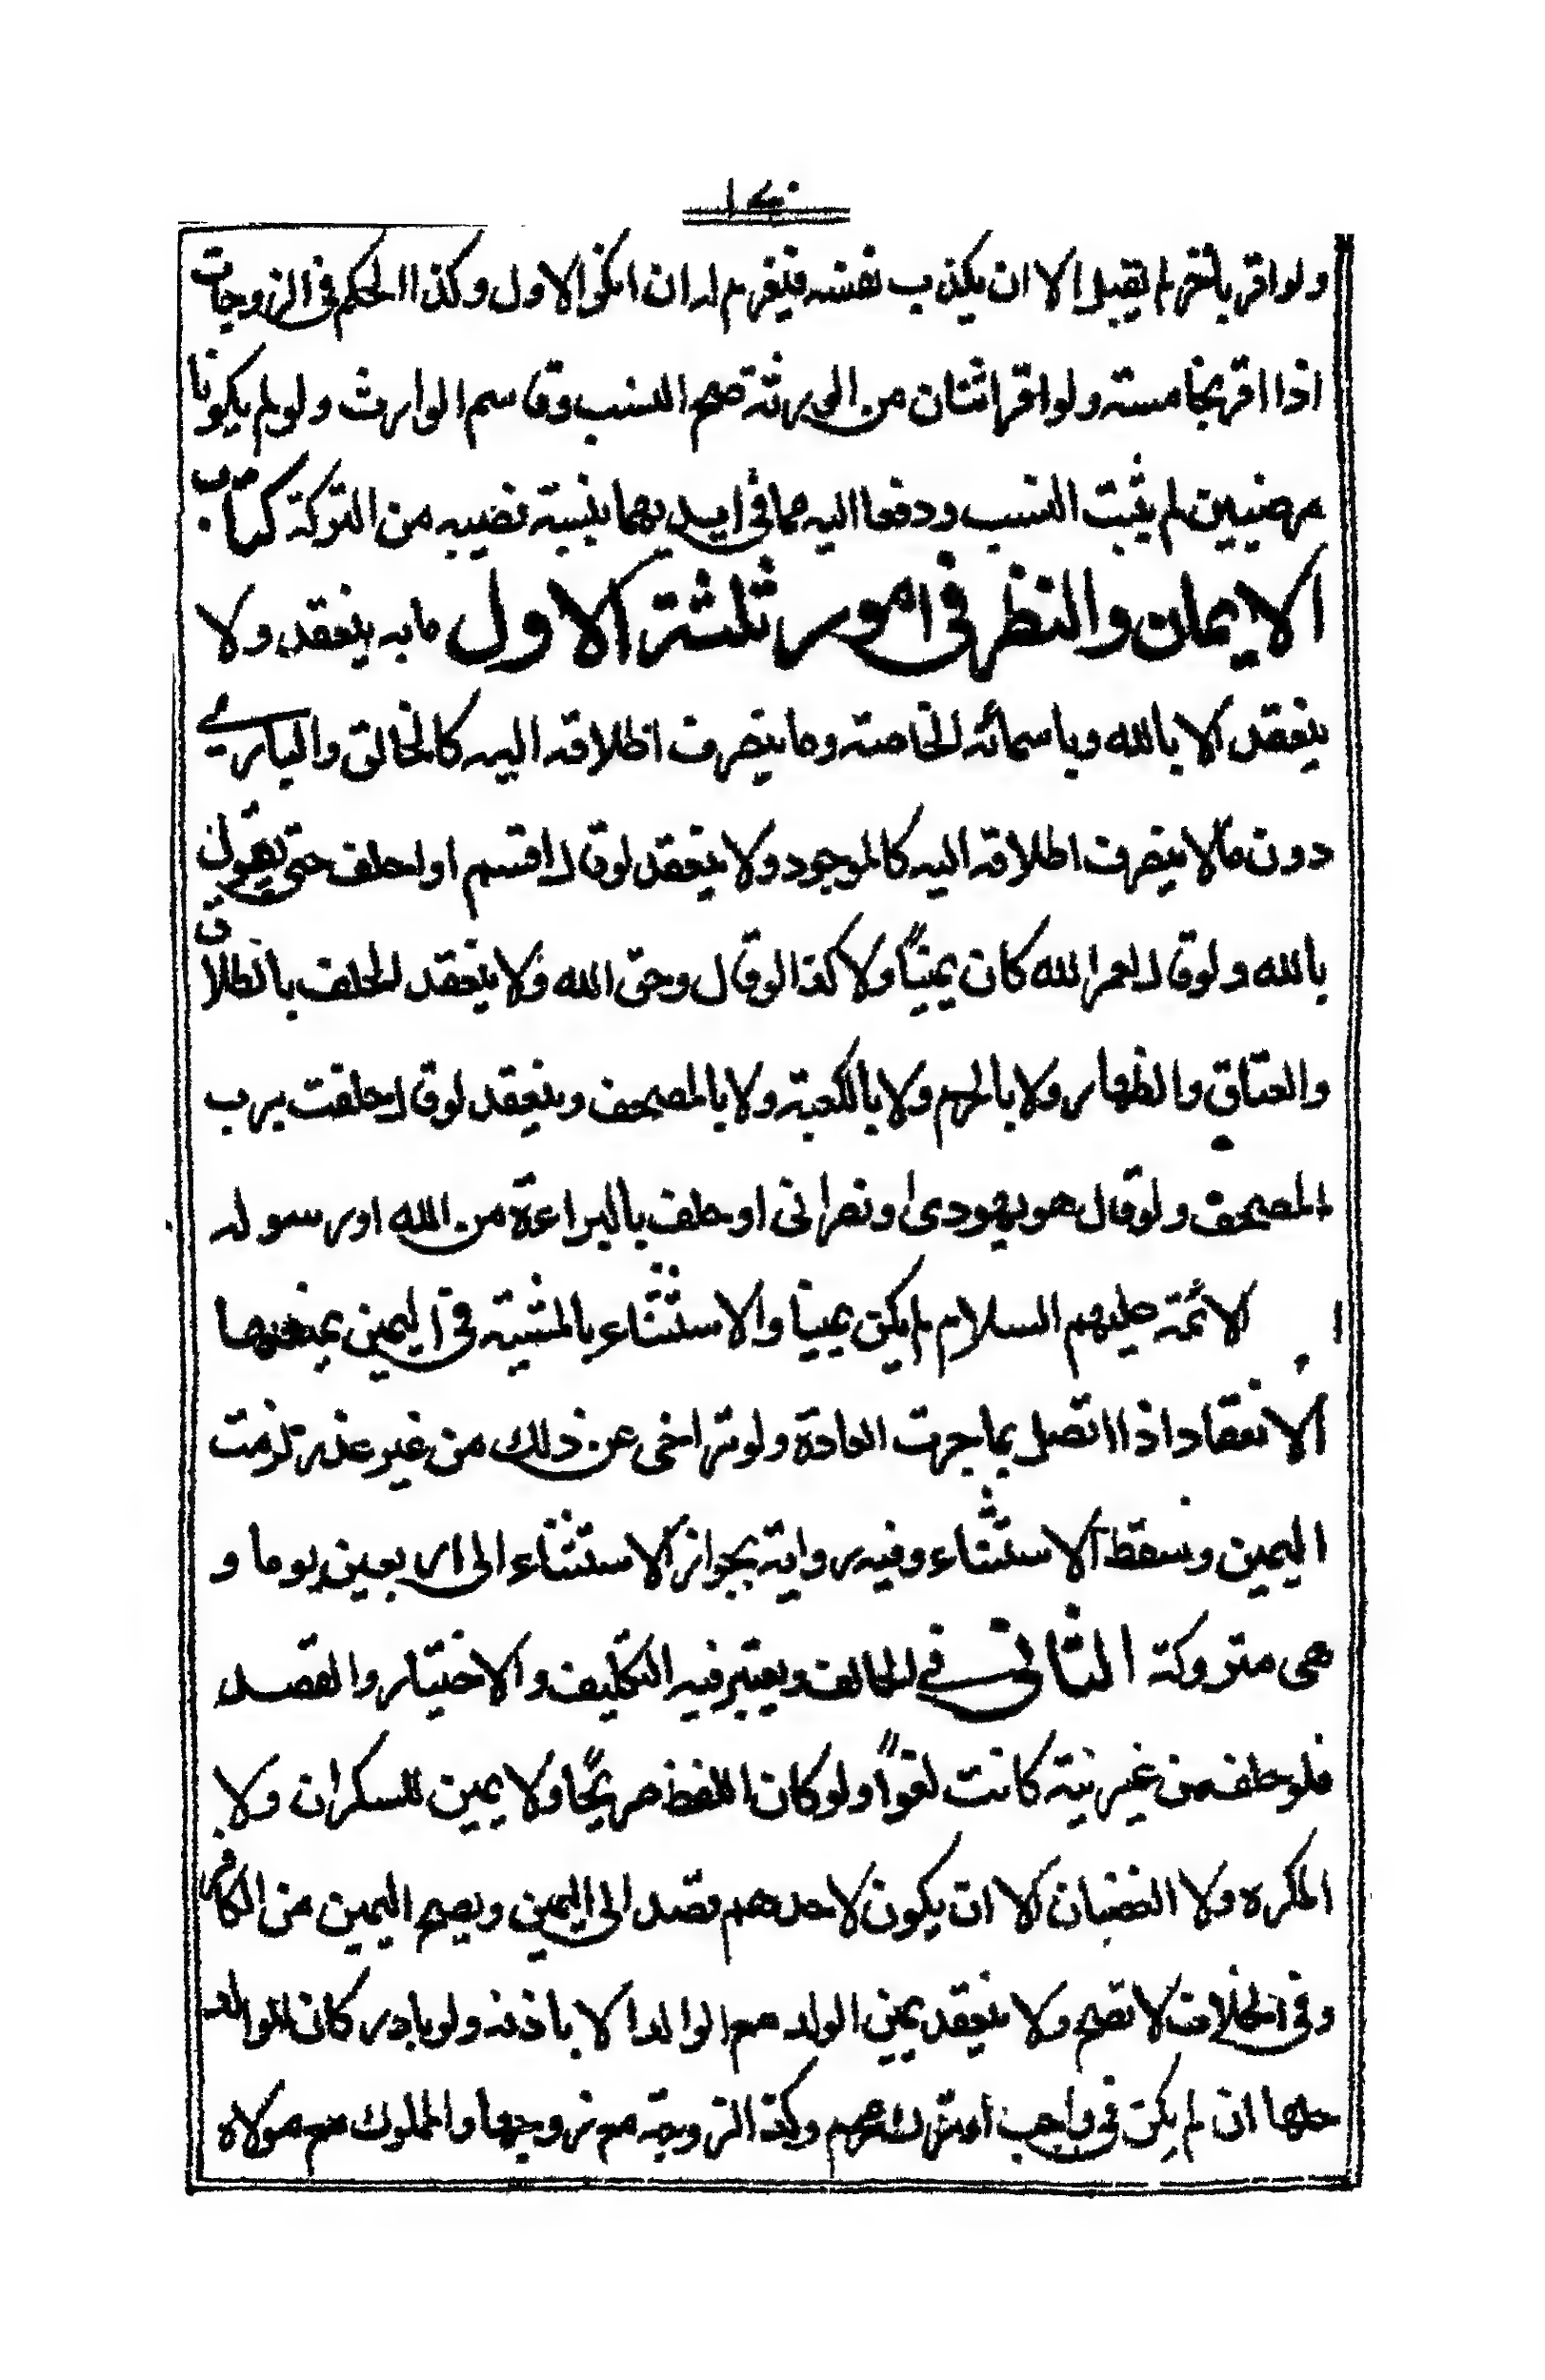 ١٤٠
ولو اقر باخر لم يقبل الا ان يكذب نفسه فيغرم له ان انكر الاول وكذا الحكم في الزوجات
اذا اقر بخامسة ولو اقر اثنان من الورثة صح النسب وقاسم الوارث ولو لم يكونا
مرضيين لم يثبت النسب ودفعا اليه مما في ايديهما بنسبة نصيبه من التركة كتاب
الايمان والنظر في امور ثلثة الاول ما به ينعقد ولا
ينعقد الا بالله وباسمائه الخاصة وما ينصرف اطلاقه اليه كالخالق والباري
دون ما لا ينصرف اطلاقه اليه كالموجود ولا ينعقد لو قال اقسم او احلف حتى يقول
بالله ولو قال لعمر الله كان يمينًا ولا كذا لو قال وحق الله ولا ينعقد الحلف بالطلاق
والعتاق والظهار ولا بالحرم ولا بالكعبة ولا بالمصحف وينعقد لو قال حلفت برب
المصحف ولو قال هو يهودى او نصرانى او حلف بالبراءة من الله او رسوله
ا الائمة عليهم السلام لم يكن يمينا والاستثناء بالمشية في اليمين يمنعها
الانعقاد اذا اتصل بما جرت العادة ولو تراخى عن ذلك من غير عذر لزمت
اليمين وسقط الاستثناء وفيه رواية بجواز الاستثناء الى اربعين يوما و
هى متروكة الثانى في الحالف ويعتبر فيه التكليف والاختيار والقصد
فلو حلف من غير نية كانت لغوًا ولو كان اللفظ صريحًا ولا يمين للسكران ولا
المكره ولا الغضبان الا ان يكون لاحدهم قصد الى اليمين ويصح اليمين من الكافر
وفي الخلاف لا تصح ولا ينعقد يمين الولد مع الوالد الا باذنه ولو بادر كان للوالد
حلها ان لم يكن في واجب او ترك محرم وكذا الزوجة مع زوجها والمملوك مع مولاه